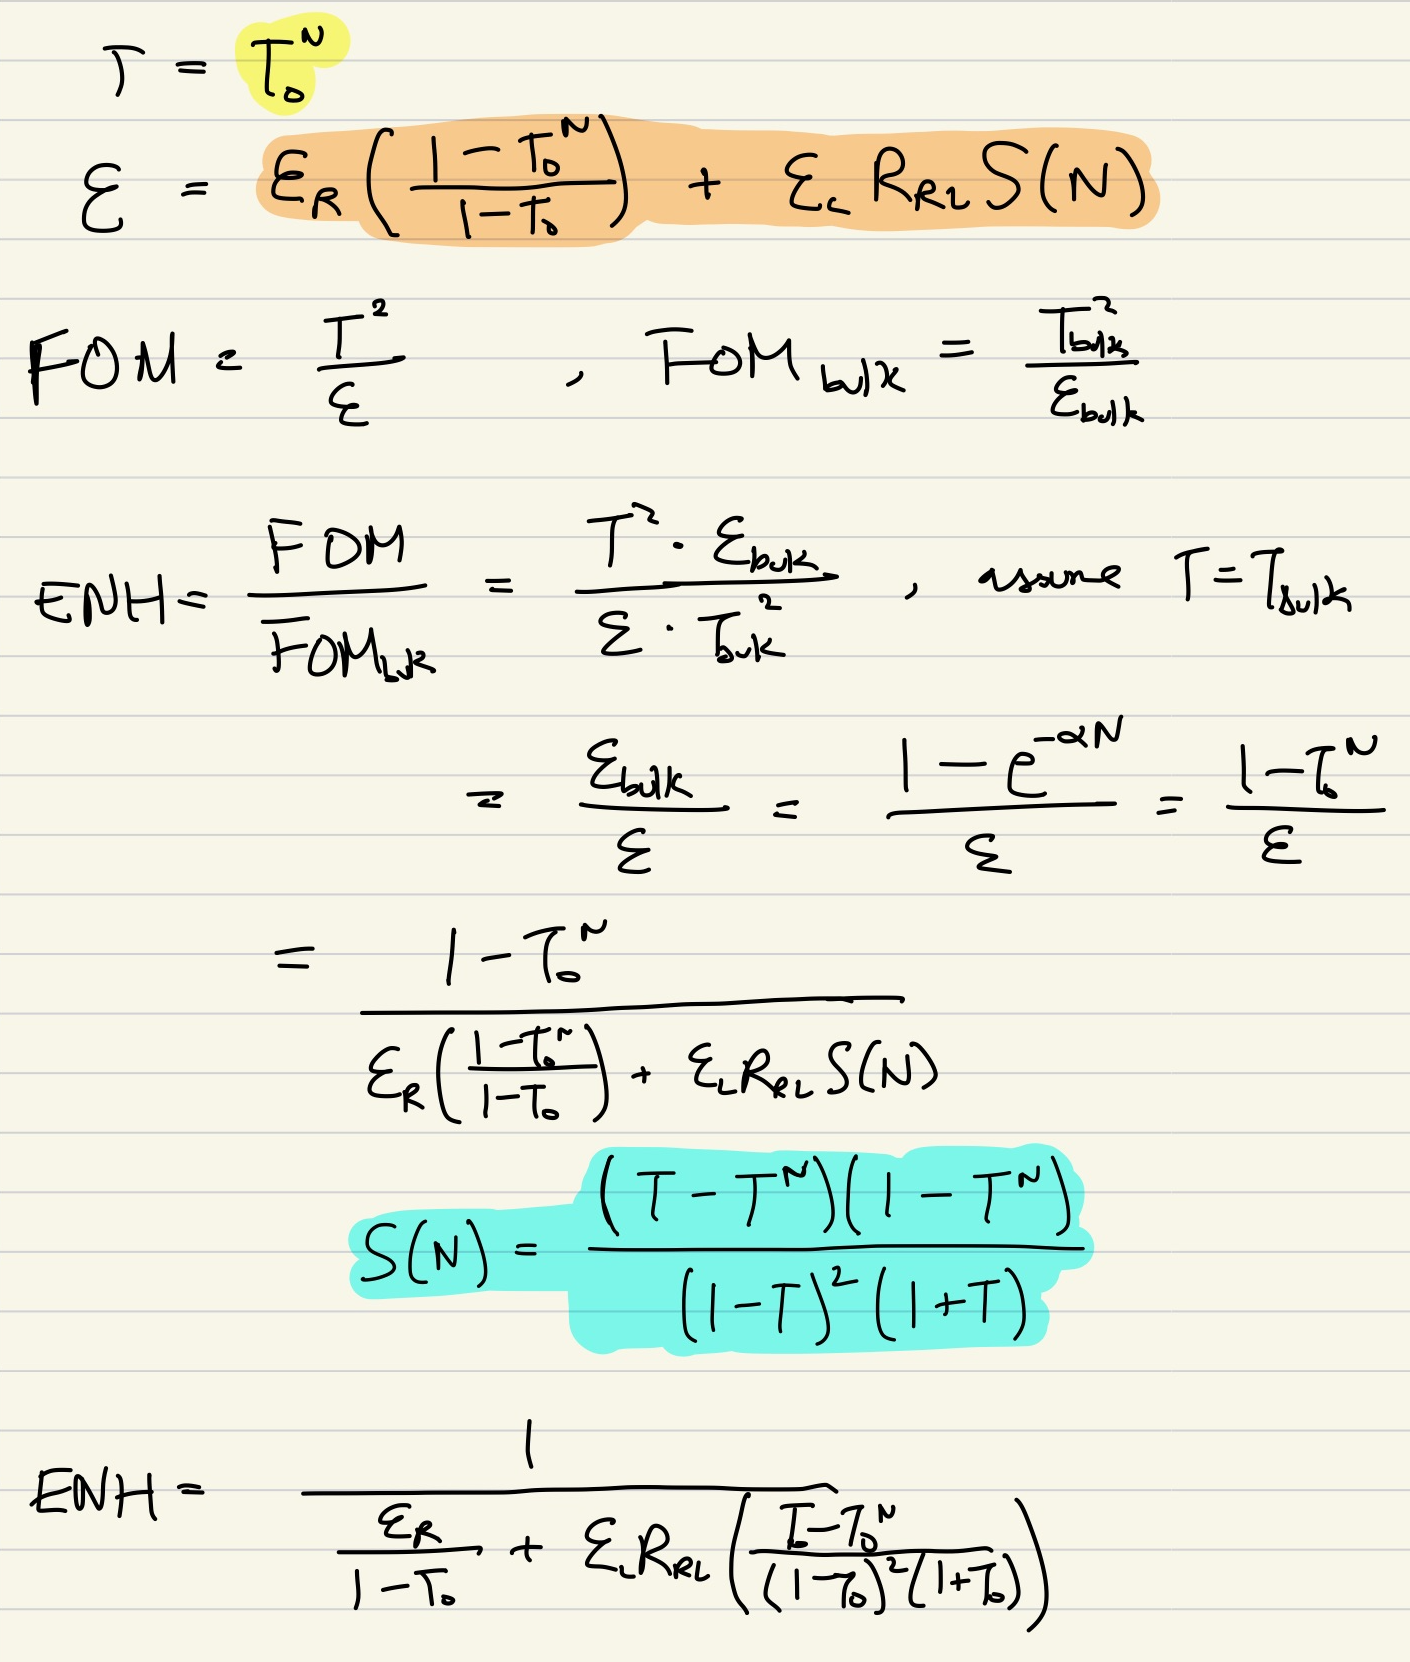 T = T₀ᴺ
ε = ε_R ( (1 - T₀ᴺ) / (1 - T₀) ) + ε_L R_RL S(N)
FOM = T² / ε , FOM_bulk = T_bulk² / ε_bulk
ENH = FOM / FOM_bulk = (T² · ε_bulk) / (ε · T_bulk²) , assume T = T_bulk
= ε_bulk / ε = (1 - e^(-αN)) / ε = (1 - T₀ᴺ) / ε
= (1 - T₀ᴺ) / ( ε_R ( (1 - T₀ᴺ) / (1 - T₀) ) + ε_L R_RL S(N) )
S(N) = (T - Tᴺ)(1 - Tᴺ) / ( (1 - T)² (1 + T) )
ENH = 1 / ( ε_R / (1 - T₀) + ε_L R_RL ( (T₀ - T₀ᴺ) / ( (1 - T₀)² (1 + T₀) ) ) )